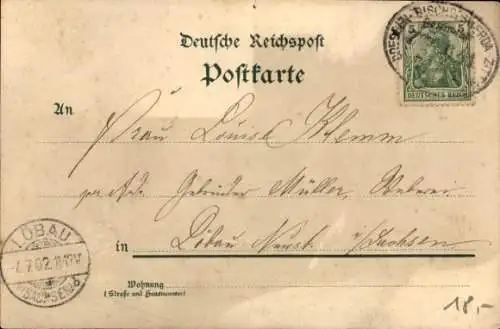 Deutsche Reichspost
Postkarte
DRESDEN-BISCHOFSWERDA
DEUTSCHES REICH
An
Frau Louise Klemm
per Adr. Gebrüder Müller, Weberei
in Löbau Neust. i/Sachsen
LÖBAU
7.7.02.
(SACHSEN)
Wohnung
(Straße und Hausnummer)
18,-